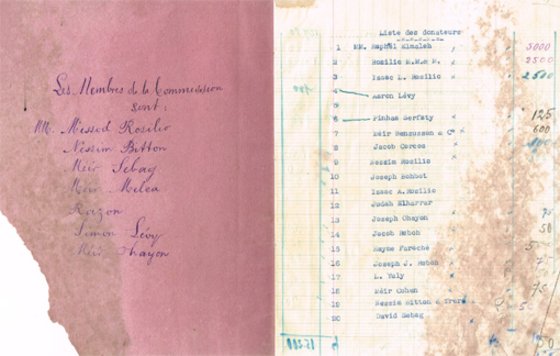 Les Membres de la Commission
sont :
MM. Messod Rosilio
Nessim Bitton
Meir Sebag
Meir Melca
Simon Lévy
Meir
Liste des donateurs
1 MM. Raphël Elmaleh 5000
2 Rosilio 2500
3 Isaac L. Rosilio 2500
4 Aaron Lévy
5
6 Pinhas Serfaty 125
7 Méir Bensussan & C° 600
8 Jacob Corcos
9 Nessim Rosilio
10 Joseph Bohbot
11 Isaac A. Rosilio
12 Judah Elharrar
13 Joseph Ohayon
14 Jacob Reboh 50
15 Hayme Farache
16 Joseph J. Reboh
17 L. Yuly
18 Méir Cohen 75
19 Nessim Bitton & Frère
20 David Sebag